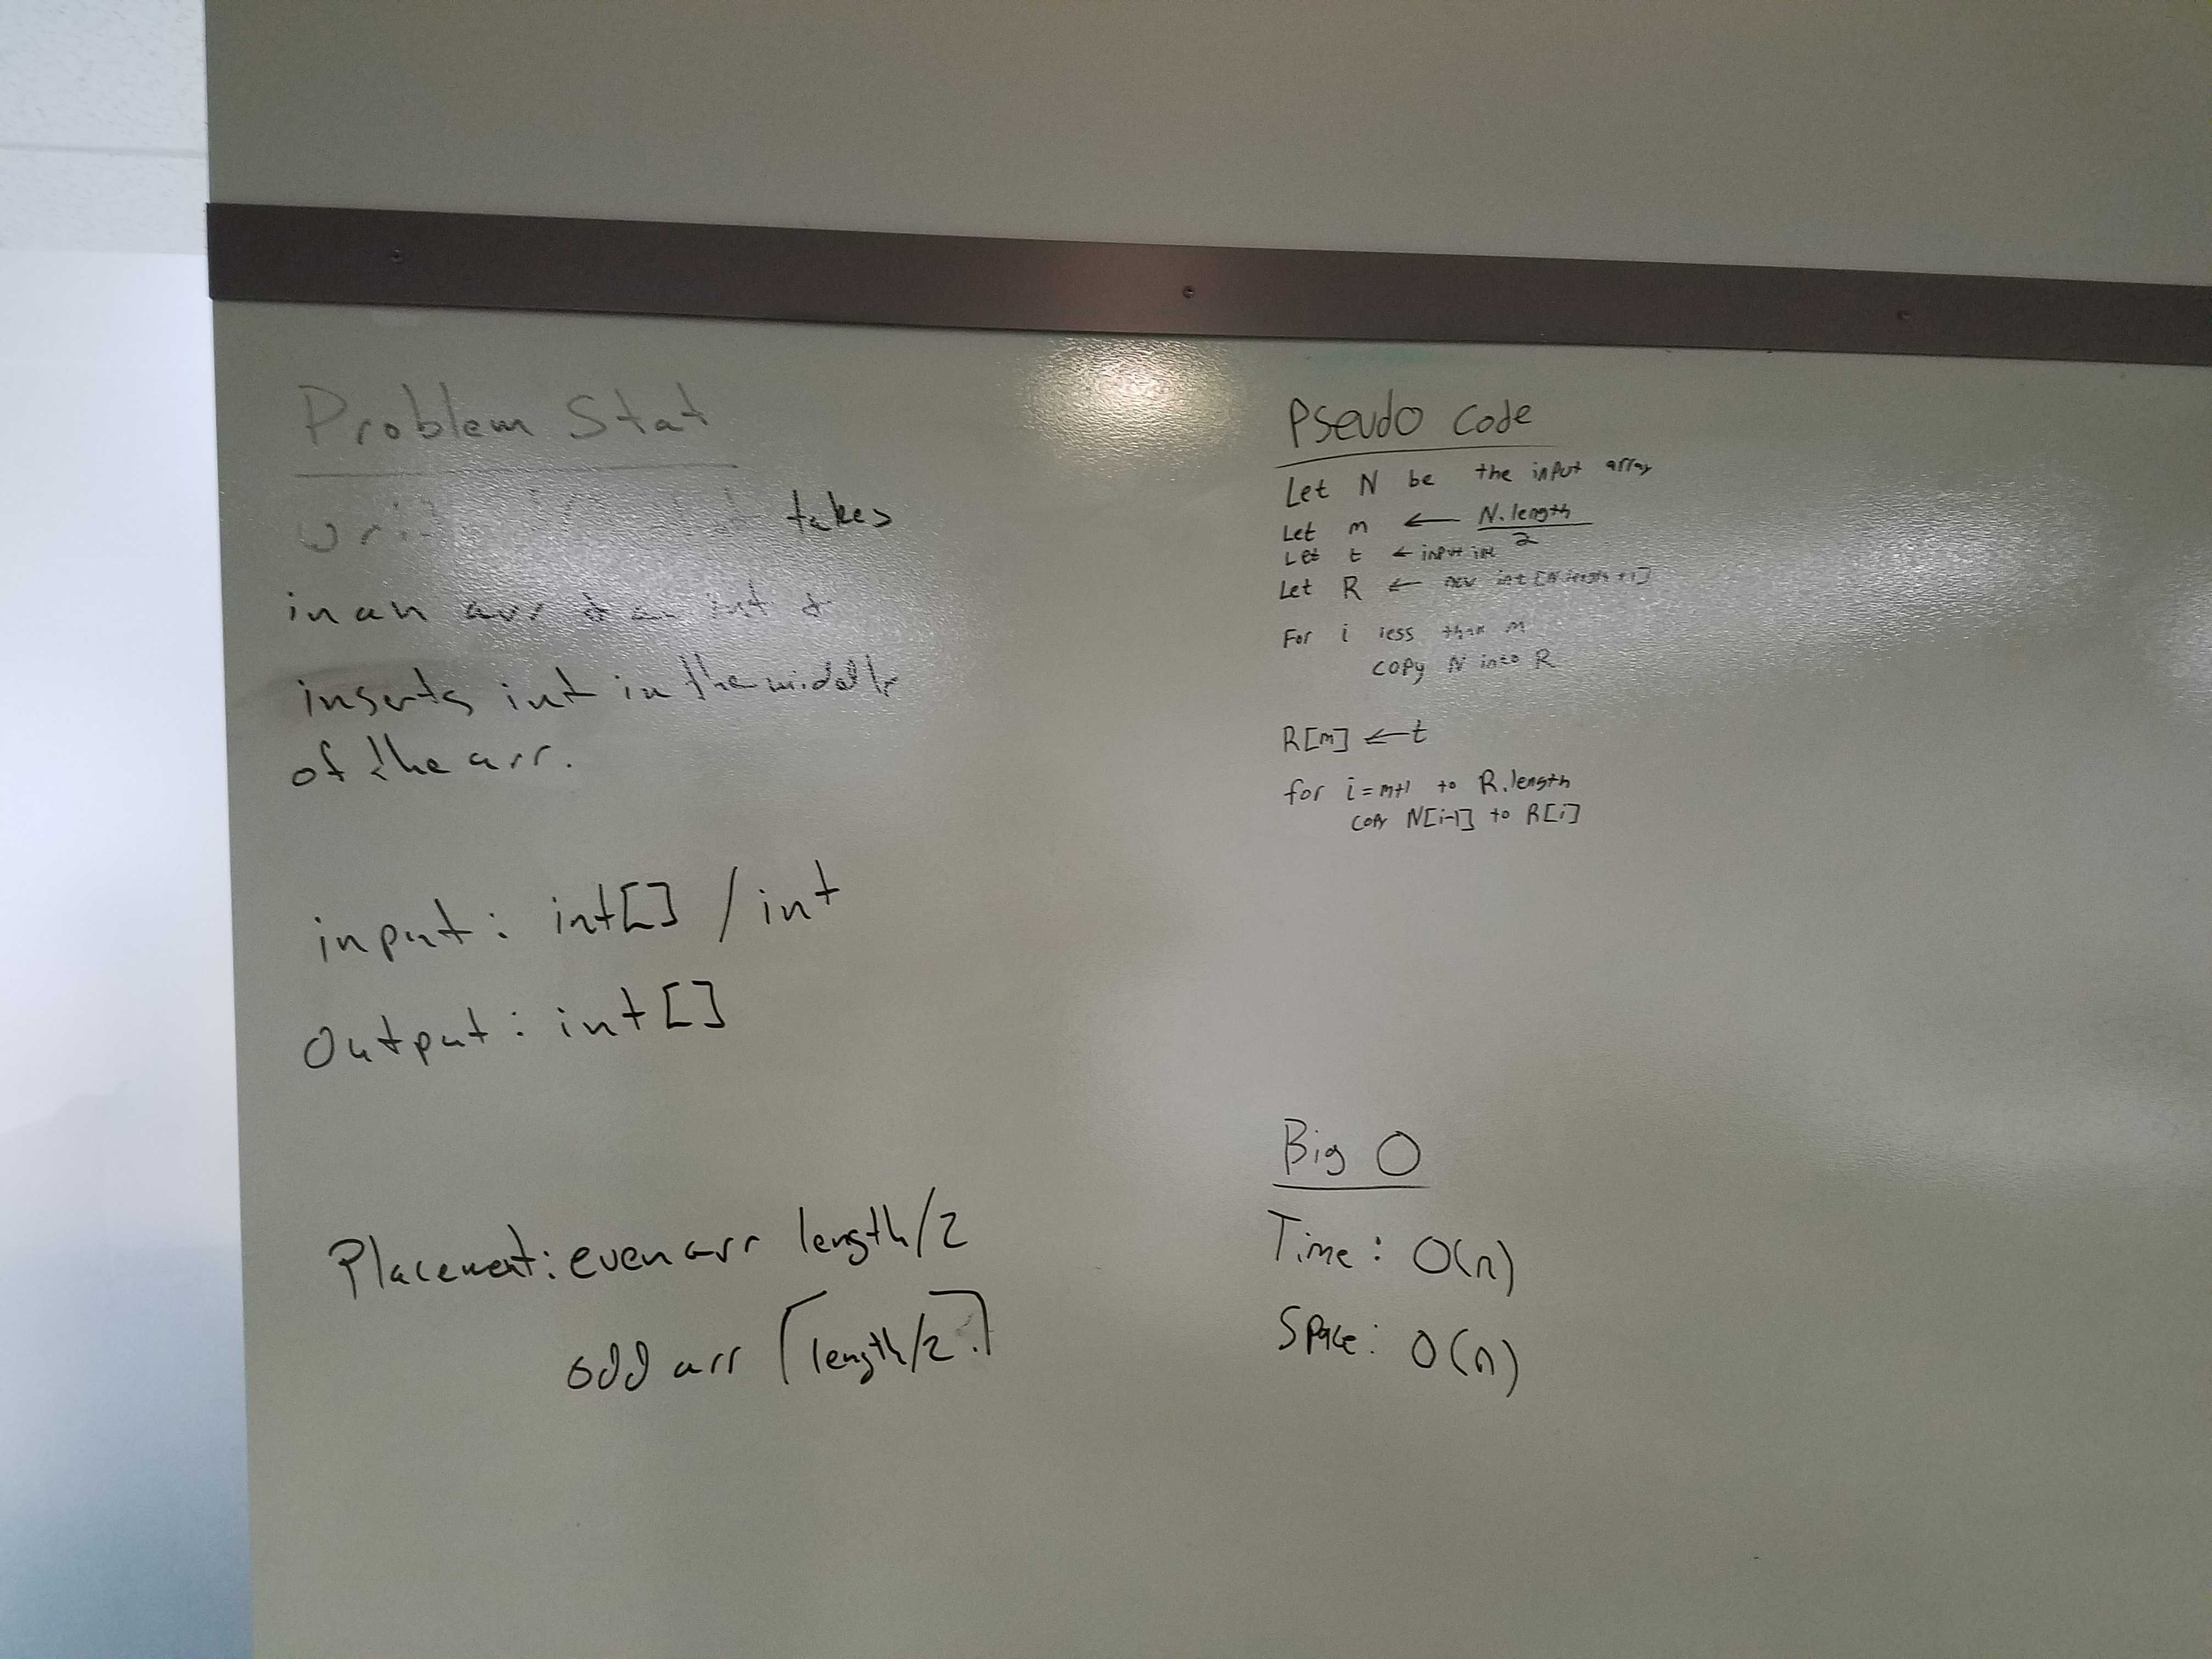 Problem Stat
takes
in an arr & an int &
inserts int in the middle
of the arr.
input: int[] / int
Output: int[]
Placement: even arr length/2
odd arr ⌈length/2.⌉
Pseudo Code
Let N be the input array
Let m ← N.length
2
Let t ← input int
Let R ← new int[N.length+1]
For i less than m
copy N into R
R[m] ← t
for i=m+1 to R.length
copy N[i-1] to R[i]
Big O
Time: O(n)
Space: O(n)